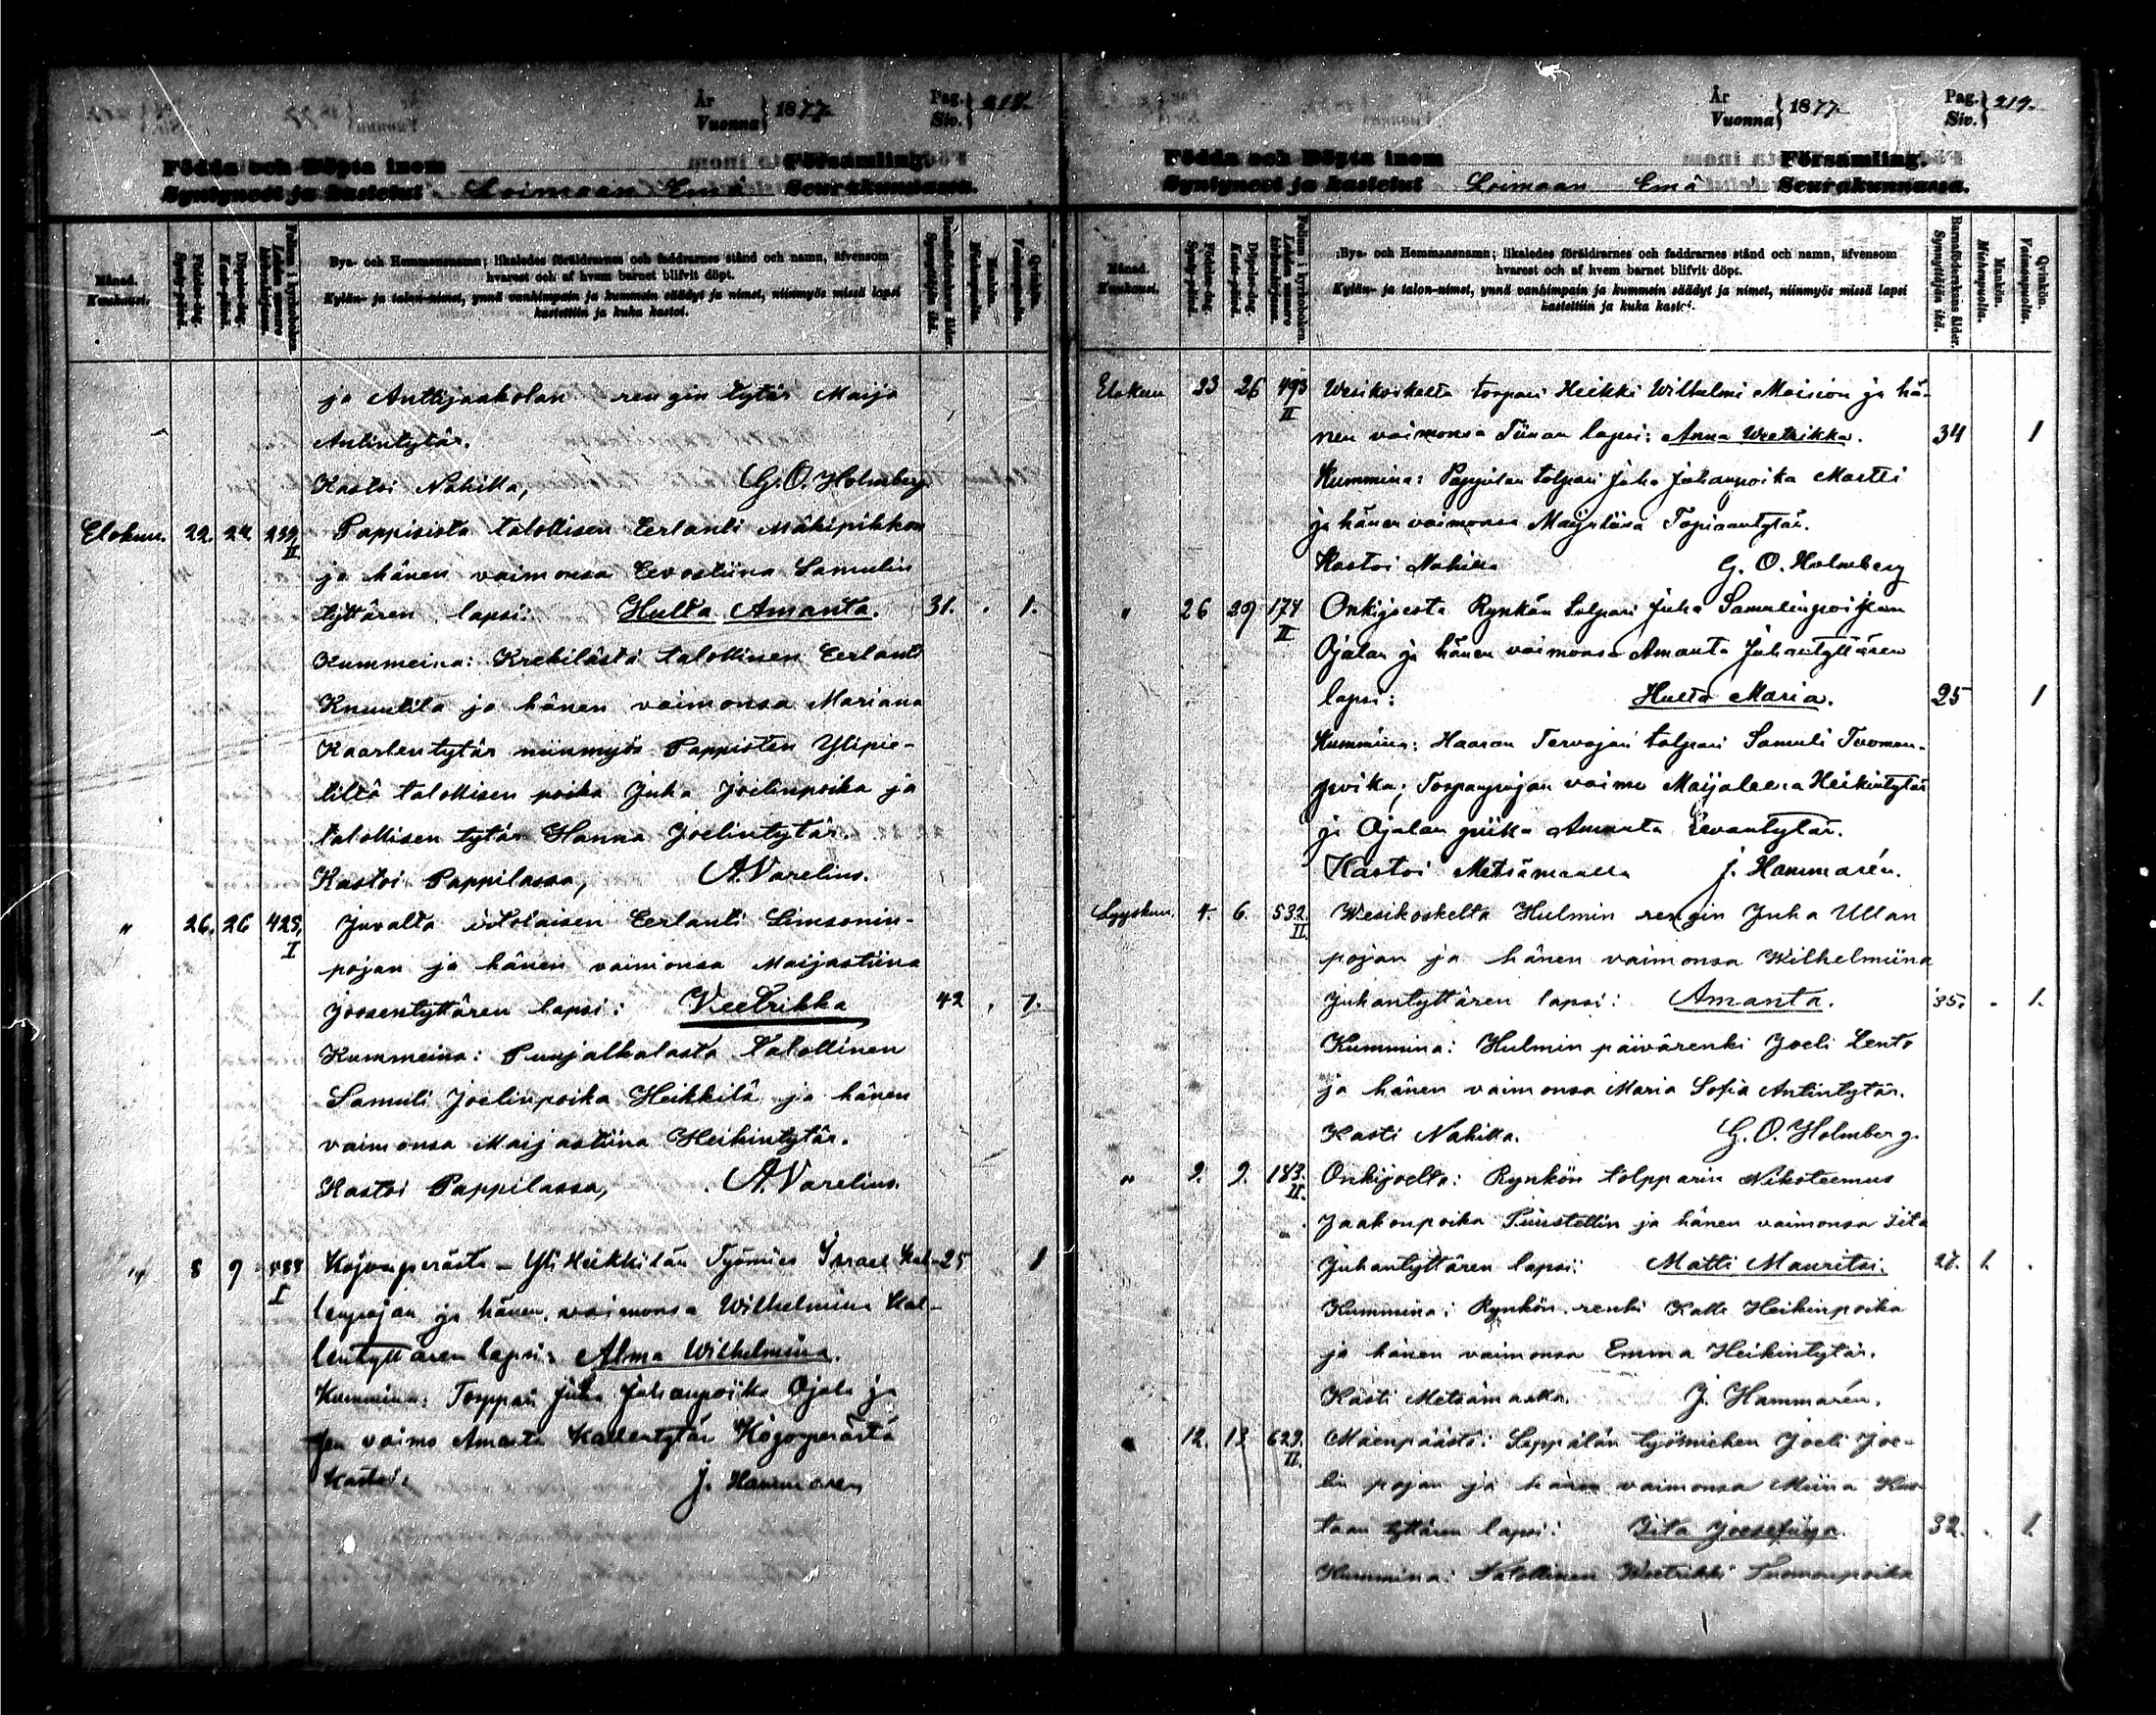 År
Vuonna } 1877.
Pag.
Siv. } 218.
Födda och Döpta inom
Församling.
Syntyneet ja kastetut Loimaan Emä Seurakunnassa.
Månad.
Kuukausi.
Födelse-dag.
Synty-päivä.
Döpelse-dag.
Kaste-päivä.
Folium i kyrkoboken.
Lehden numero kirkonkirjassa.
Bya- och Hemmansnamn; likaledes föräldrarnes och faddrarnes stånd och namn, äfvensom
hvarest och af hvem barnet blifvit döpt.
Kylän- ja talon-nimet, ynnä vanhimpain ja kummein säädyt ja nimet, niinmyös missä lapsi
kastettiin ja kuka kastoi.
Barnaföderskans ålder.
Synnyttäjän ikä.
Mankön.
Miehenpuolia.
Qvinkön.
Vaimonpuolia.
ja Anttijaakolan rengin tytär Maija
Antintytär.
Kastoi Nahilla, G. O. Holmberg
Elokuu. 22. 24 239 II. Pappisista talollisen Eerlanti Mäkipikkon
ja hänen vaimonsa Eevastiina Samulin
tyttären lapsi: Hulta Amanta. 31. . 1.
Kummeina: Krekilästä talollinen Eerlanti
Knuutila ja hänen vaimonsa Mariana
Kaarlentytär niinmyös Pappisten Ylipie-
tiltä talollisen poika Juha Joelinpoika ja
talollisen tytär Hanna Joelintytär.
Kastoi Pappilassa, A. Varelius.
" 26. 26 425, I Juvalta itsolaisen Eerlanti Simsonin-
pojan ja hänen vaimonsa Maijastiina
Joosentyttären lapsi: Veetrikka 42 . 1.
Kummeina: Puujalkalasta talollinen
Samuli Joelinpoika Heikkilä ja hänen
vaimonsa Maijastiina Heikintytär.
Kastoi Pappilassa, A. Varelius.
" 8 9 I Kojonperästä - Yli Heikkilän Työmies Israel Kal- 25 1
lenpojan ja hänen vaimonsa Wilhelmina Kal-
lentyttären lapsi: Alma Wilhelmina.
Kummina: Torppari Juha Juhanpoika Ojala ja
sen vaimo Amanta Kallentytär Kojoperästä
Kastoi: J. Hammaren
År
Vuonna } 1877.
Pag.
Siv. } 219.
Födda och Döpta inom
Församling.
Syntyneet ja kastetut Loimaan Emä Seurakunnassa.
Månad.
Kuukausi.
Födelse-dag.
Synty-päivä.
Döpelse-dag.
Kaste-päivä.
Folium i kyrkoboken.
Lehden numero kirkonkirjassa.
Bya- och Hemmansnamn; likaledes föräldrarnes och faddrarnes stånd och namn, äfvensom
hvarest och af hvem barnet blifvit döpt.
Kylän- ja talon-nimet, ynnä vanhimpain ja kummein säädyt ja nimet, niinmyös missä lapsi
kastettiin ja kuka kastoi.
Barnaföderskans ålder.
Synnyttäjän ikä.
Mankön.
Miehenpuolia.
Qvinkön.
Vaimonpuolia.
Elokuu 23 26 493 II Wesikoskelta torpari Heikki Wilhelmi Maision ja hä-
nen vaimonsa Tiinan lapsi: Anna Weetrikka. 34 1
Kummina: Pappilan tolpari Juha Juhanpoika Martti
ja hänen vaimonsa Maijastiina Topiaantytär.
Kastoi Nahilla G. O. Holmberg
" 26 29 174 II Onkijoesta Rynkön tolpari Juha Samulinpoijan
Ojalan ja hänen vaimonsa Amanta Juhantyttären
lapsi: Hulta Maria. 25 1
Kummina: Haaran Tervojan tolpari Samuli Tuoman-
poika; Torpanpojan vaimo Maijaleena Heikintytär
ja Ojalan piika Amanta Eevantytär.
Kastoi Metsämaalla J. Hammarén.
Syyskuu. 4. 6. 532. II. Wesikoskelta Hulmin rengin Juha Ullan
pojan ja hänen vaimonsa Wilhelmiina
Juhantyttären lapsi: Amanta. 35. . 1.
Kummina: Hulmin päivärenki Joeli Lento
ja hänen vaimonsa Maria Sofia Antintytär.
Kasti Nahilla. G. O. Holmberg.
" 9. 9. 183. II. Onkijoelta: Rynkön tolpparin Nikoteemus
Jaakonpoika Puustellin ja hänen vaimonsa Iita
Juhantyttären lapsi: Matti Mauritsi. 27. 1. .
Kummina: Rynkön renki Kalle Heikinpoika
ja hänen vaimonsa Emma Heikintytär.
Kasti Metsämaalla. J. Hammarén.
" 12. 13 629. II. Mäenpäästä: Seppälän työmiehen Joeli Joe-
lin pojan ja hänen vaimonsa Miina Kus-
taan tyttären lapsi: Iita Joosefiina. 32. . 1.
Kummina: Talollinen Weetrikki Tuomanpoika